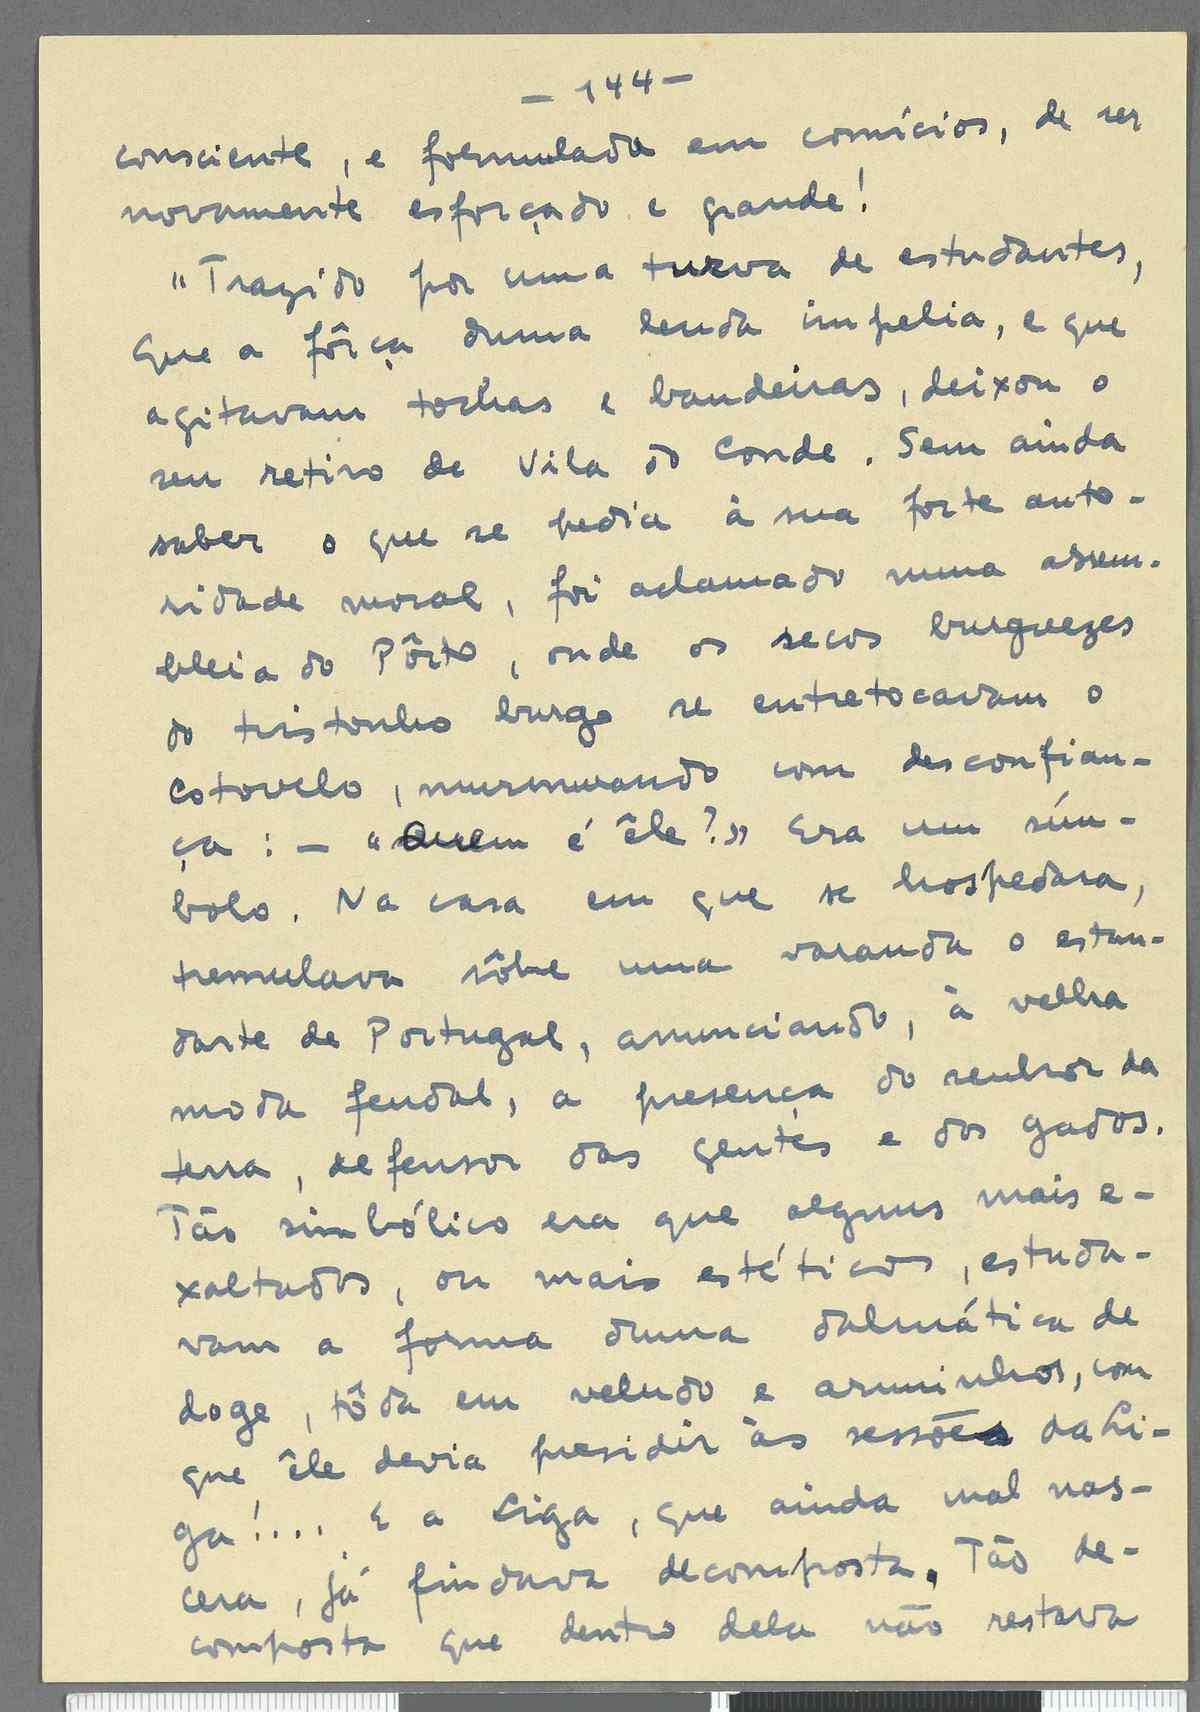 - 144 -
consciente, e formulada em comícios, de ser
novamente esforçado e grande!
"Trazido por uma turva de estudantes,
que a fôrça duma lenda impelia, e que
agitavam tochas e bandeiras, deixou o
seu retiro de Vila do Conde. Sem ainda
saber o que se pedia à sua forte auto-
ridade moral, foi aclamado numa assem-
bleia do Pôrto, onde os secos burguezes
do tristonho burgo se entretocavam o
cotovelo, murmurando com desconfian-
ça: - «Quem é êle?» Era um sím-
bolo. Na casa em que se hospedara,
tremulava sôbre uma varanda o estan-
darte de Portugal, anunciando, à velha
moda feudal, a presença do senhor da
terra, defensor das gentes e dos gados.
Tão simbólico era que alguns mais e-
xaltados, ou mais estéticos, estuda-
vam a forma duma dalmática de
doge, tôda em veludo e arminhos, com
que êle devia presidir às sessões da Li-
ga!... E a Liga, que ainda mal nas-
cera, já findava decomposta. Tão de-
composta que dentro dela não restava